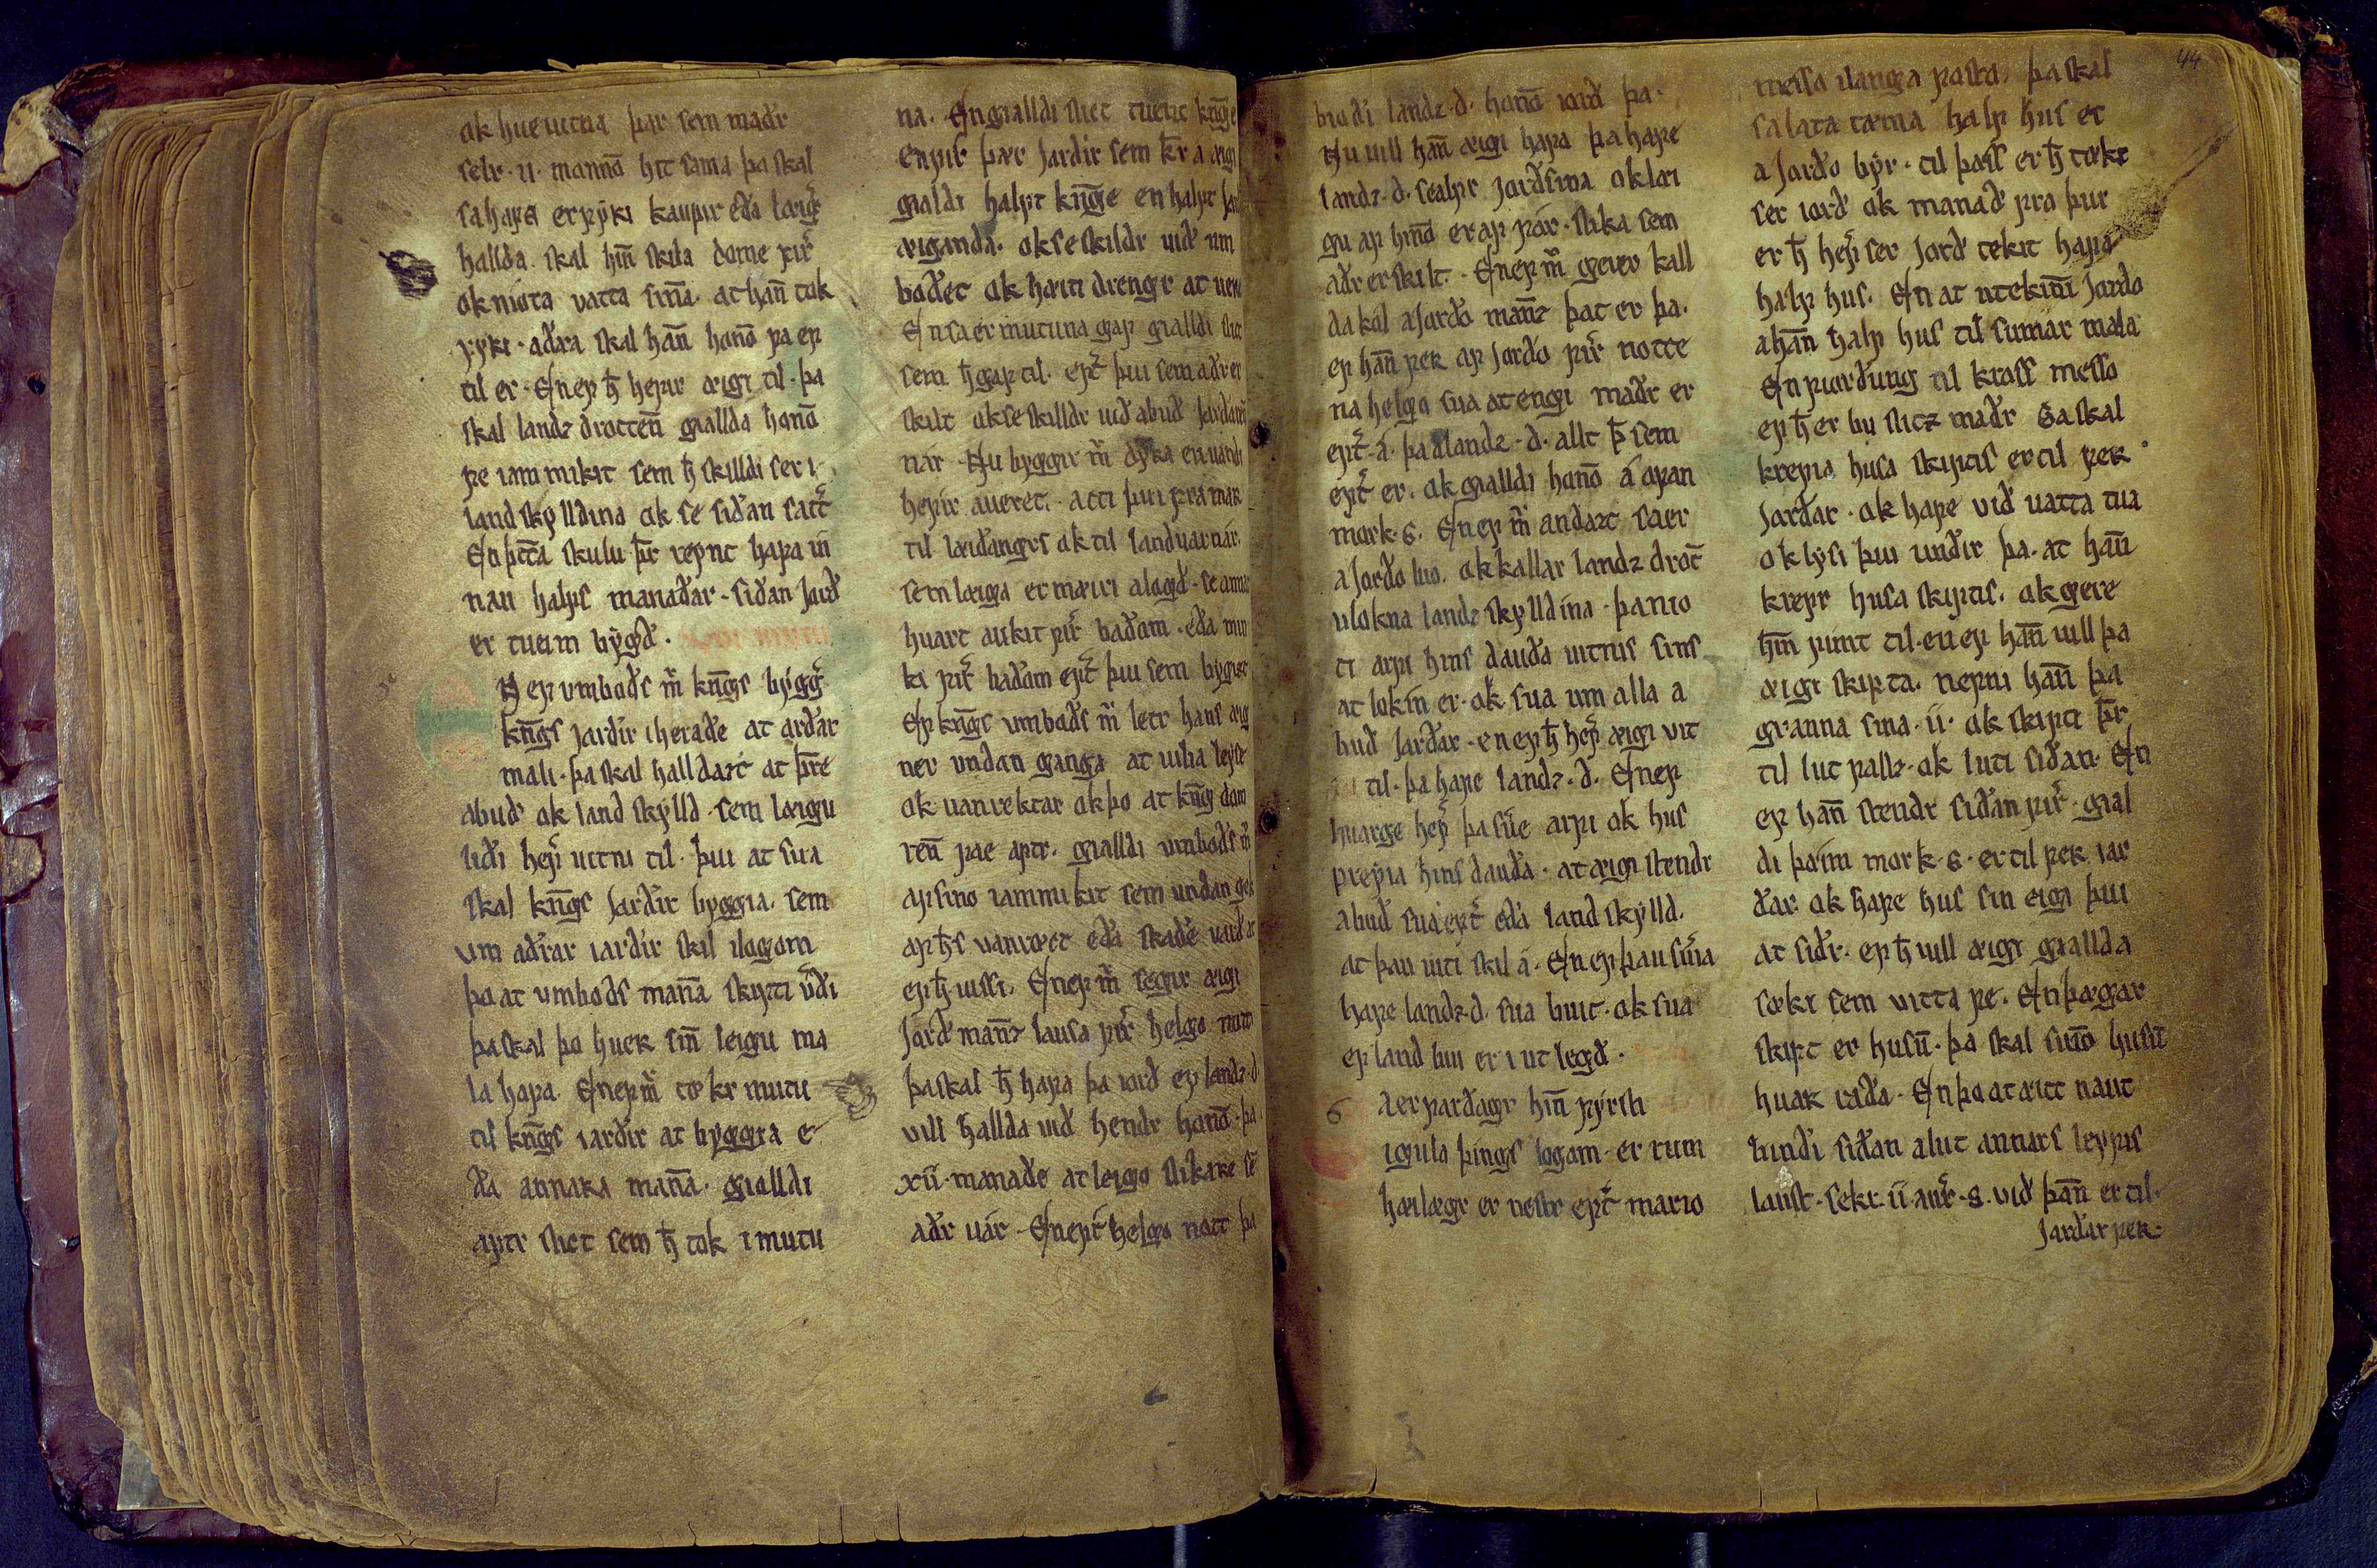 ok hue uitna þar sem maðr
selr · ii · mannō hit sama þa skal
sa hafa er fyʀi kaupir eða leigᷓ
hallda · skal hin̄ skila dome firᷓ
ok niota vatta sin̄a · at han̄ tok
fyʀi · aðra skal han̄ honō fa ef
til er · En ef ħ hefir æigi til · þa
skal landz drotten̄ giallda honō
fe iam mikit sem ħ skilldi ser i
landskylldina ok se siðan satᷓ
En þetta skulu þr̄ reynt hafa in
nan halfs manaðar · siðan Jorð
er tueim bygð ·
N ef vmboðs m̄ kngs bygᷓ
kngs jarðir i heraðe at arðar
mali · þa skal halldazt at þr̄e
abuð ok landskylld · sem leigu
liði hefᷓ uitni til · þui at sua
skal kngs jarðir byggia · sem
vm aðrar iarðir skil ilogom
þo at vmboðs man̄a skipti vᷓði
þa skal þo huer sin̄ leigu ma
la hafa · En ef m̄ tekr mutu
til kngs iarðir at byggia e
ða annara man̄a · gialldi
aptr slict sem ħ tok i mutu
na · En gialldi slict tueict kn̄ge
en fir þær jarðir sem kr̄ a æigi
gialdi halft kn̄ge en halft
æiganda · ok se skildr uið um
boðet ok hæiti drengr at
En sa er mutuna gaf gialldi
sem ħ gaf til · eftᷓ þui sem aðr er
skilt ok se skilldr uið abuð
nar · Nu byggir m̄ dyra en uandi
hefir aueret · atti þui fra mær
til læiðangrs ok til landuarnar
sem leiga er mæiri alogð · se annat
huart aukit firᷓ baðom · eða min
ki firᷓ baðom eftᷓ þui sem bygiet
Ef kngs vmboðs m̄ letr hans æig
ner vndan ganga at uilia
ok uanrektar ok þo at kng dom
ren̄ fae aptr · gialldi vmboðs m̄
af sino iammikit sem undan
af hs vanrect eða skaðe
ef ħ uissi · En ef m̄ segir æigi
Jorð man̄z lausa firᷓ helga
þa skal ħ hafa þa iorð ef landz · d
vill hallda uið hendr honō · þa
xii · manaðe at leigo slikare sē
aðr uar · En eftᷓ helga nott þa
bioði landz · d · honō iorð þa ·
Nu uill han̄ æigi hafa þa hafe
landz · d · sealfr jorð sina ok læi
gu af hinō er af for · slika sem
aðr er skilt · En ef m̄ gerer kall
da kol a Jorðo man̄z þat er þa ·
ef han̄ fer af jorðo firᷓ notte
na helgo sua at engi maðr er
eftᷓ · a · þa a landz · d · allt þ̄ sem
eftᷓ er · ok gialldi honō a afan
mork · s · En ef m̄ andazt sa er
a Jorðo bio · ok kallar landz drot̄
vlokna landz skylldina · þa nio
ti arfi hins dauða uitnis sins
at lokin er · ok sua um alla a
buð Jarðar · en ef ħ hefᷓ æigi vit
til · þa hafe landz · d · En ef
huarge hefᷓ þa sue arfi ok hus
freyia hins dauða · at æigi stendr
abuð sua eftᷓ eða landskylld ·
at þau uiti skil a · En ef þau suᷓia
hafe landz · d · sua buit · ok sua
ef land bui er i utlegð ·
a er fardagr hin̄ fyrsti
igula þings logom · er rum
hæilagr er nestr eftᷓ mario
messa ilanga fasta · þa skal
sa lata toma half hus er
a Jorðo byr · til þæss er ħ tekr
ser iorð ok manað fra þui
er ħ hefᷓ ser Jorð tekit hafa
half hus · En at utekinni Jorðo
a han̄ half hus til sumar mala
En fiorðung til kross messo
ef ħ er bu slitz maðr Sa skal
krefia husa skiptis er til fer
Jarðar · ok hafe við uatta tua
ok lysi þui undir þa · at han̄
krefr husa skiptis · ok gere
hm̄ fimt til · en ef han̄ uill þa
æigi skipta · nefni han̄ þa
granna sina · ii · ok skipti þr̄
til lut fallz · ok luti siðan · En
ef han̄ stendr siðan firᷓ · gial
di þæim mork · s · er til fer iar
ðar · ok hafe hus sin eigi þui
at siðr · ef ħ uill æigi giallda
soki sem vitta fe · En þægar
skipt er husū · þa skal sinō husū
huar raða · En þo at æitt naut
bundi siðan alut annars leyfis
laust · sekr · ii · aurᷓ · s · við þan̄ er til ·
Jarðar fer ·
44
6